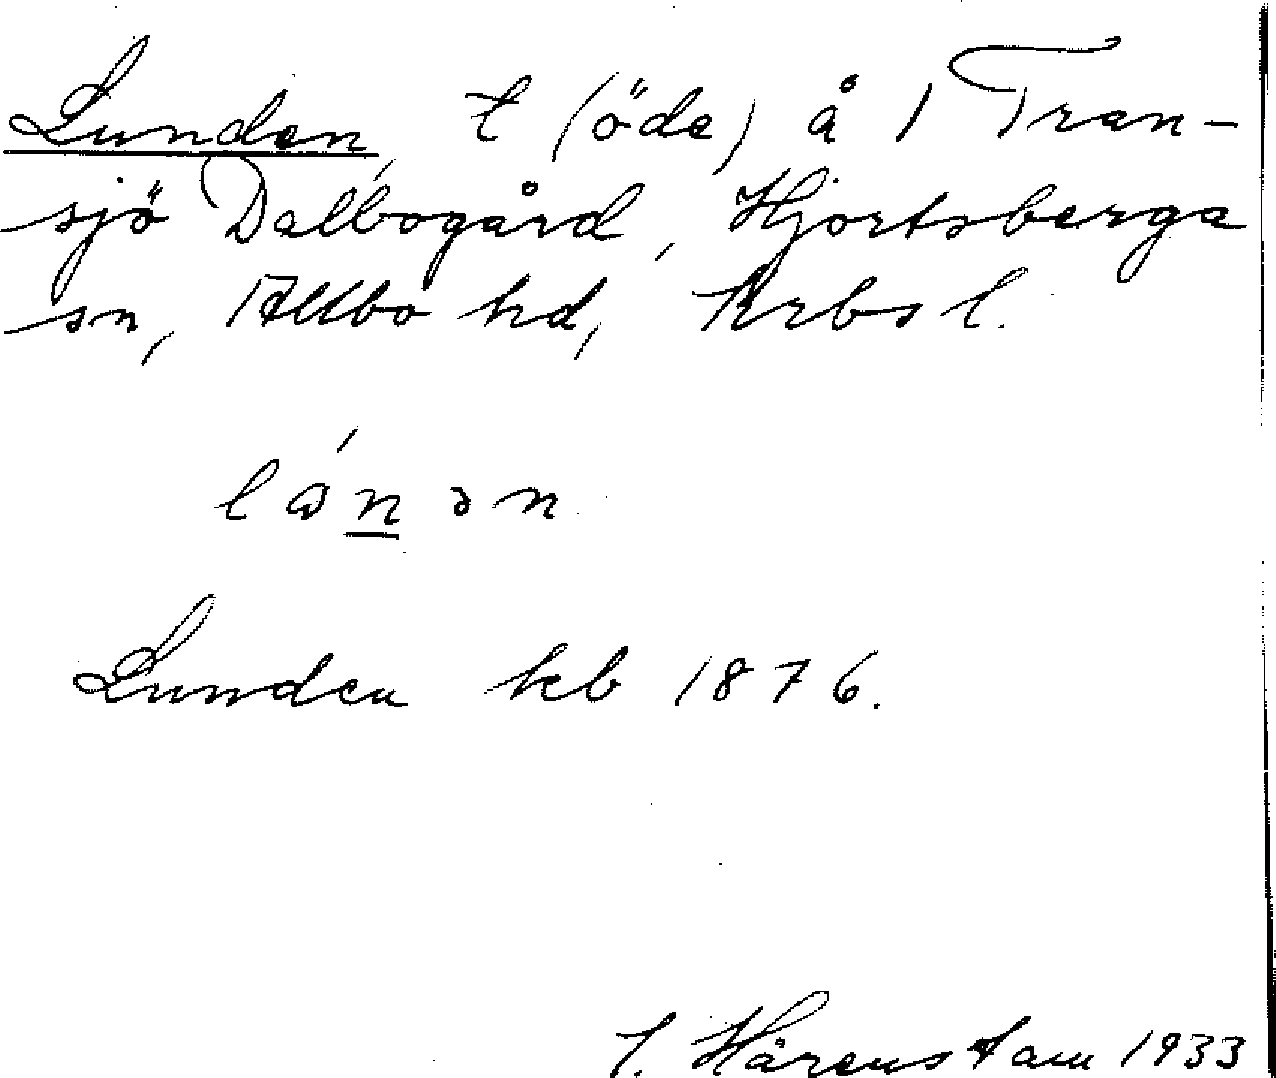 Lunden, t (öde) å 1 Tran-
sjö Dalbogård, Hjortsberga
sn, Allbo hd, Krbs l.
lánən
Lunden kb 1876.
J. Hårenstam 1933